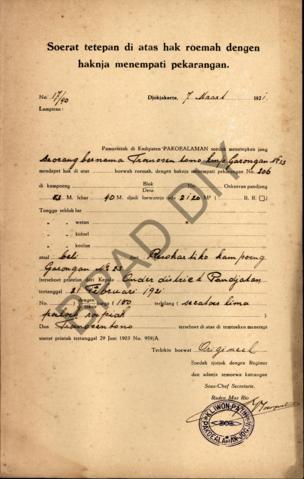 Soerat tetepan di atas hak roemah dengen
haknja menempati pekarangan.
No. 17/90 Djokjakarta, 7 Maart 1921.
Lampiran:
Pamarintah di Kadipaten PAKOEALAMAN soedah menetepken jang
seorang bernama Tronosentono
mendapet hak di atas boewat roemah, dengen haknja menempati pekarangan No. 206
di kampoeng Blok Desa Onderan pandjang
53 M. lebar 40 M. djadi loewasnja ada 2120 M² ( R. R. )
Tongga sebelah lor
" " wetan
" " kidoel
" " koelon
asal beli kampoeng
Gerongan No 23
terseboet poetoesan dari Kepala Onder district Pandjatan
tertanggal 21 Februari 1921
No. (100) terbilang seratoes lima
poeloeh roepiah
Dan Tronosentono terseboet di atas temtoeken menoeroet
soerat prentah tertanggal 29 Juni 1903 No. 959/A.
Terbikin boewat Origineel
Soedah tjotjok dengen Register
dan adanja semoewa katrangan
Sous-Chef Secretarie,
Raden Mas Rio
KLIWON-PATIH
PAKOEALAMAN
BPAD DIY